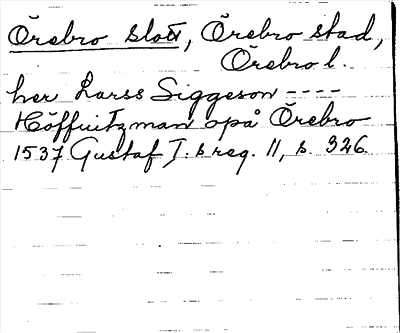 Örebro slott, Örebro stad,
Örebro l.
her Larss Siggeson ----
Höffuitzman opå Örebro
1537 Gustaf I:s reg. 11, s. 326.